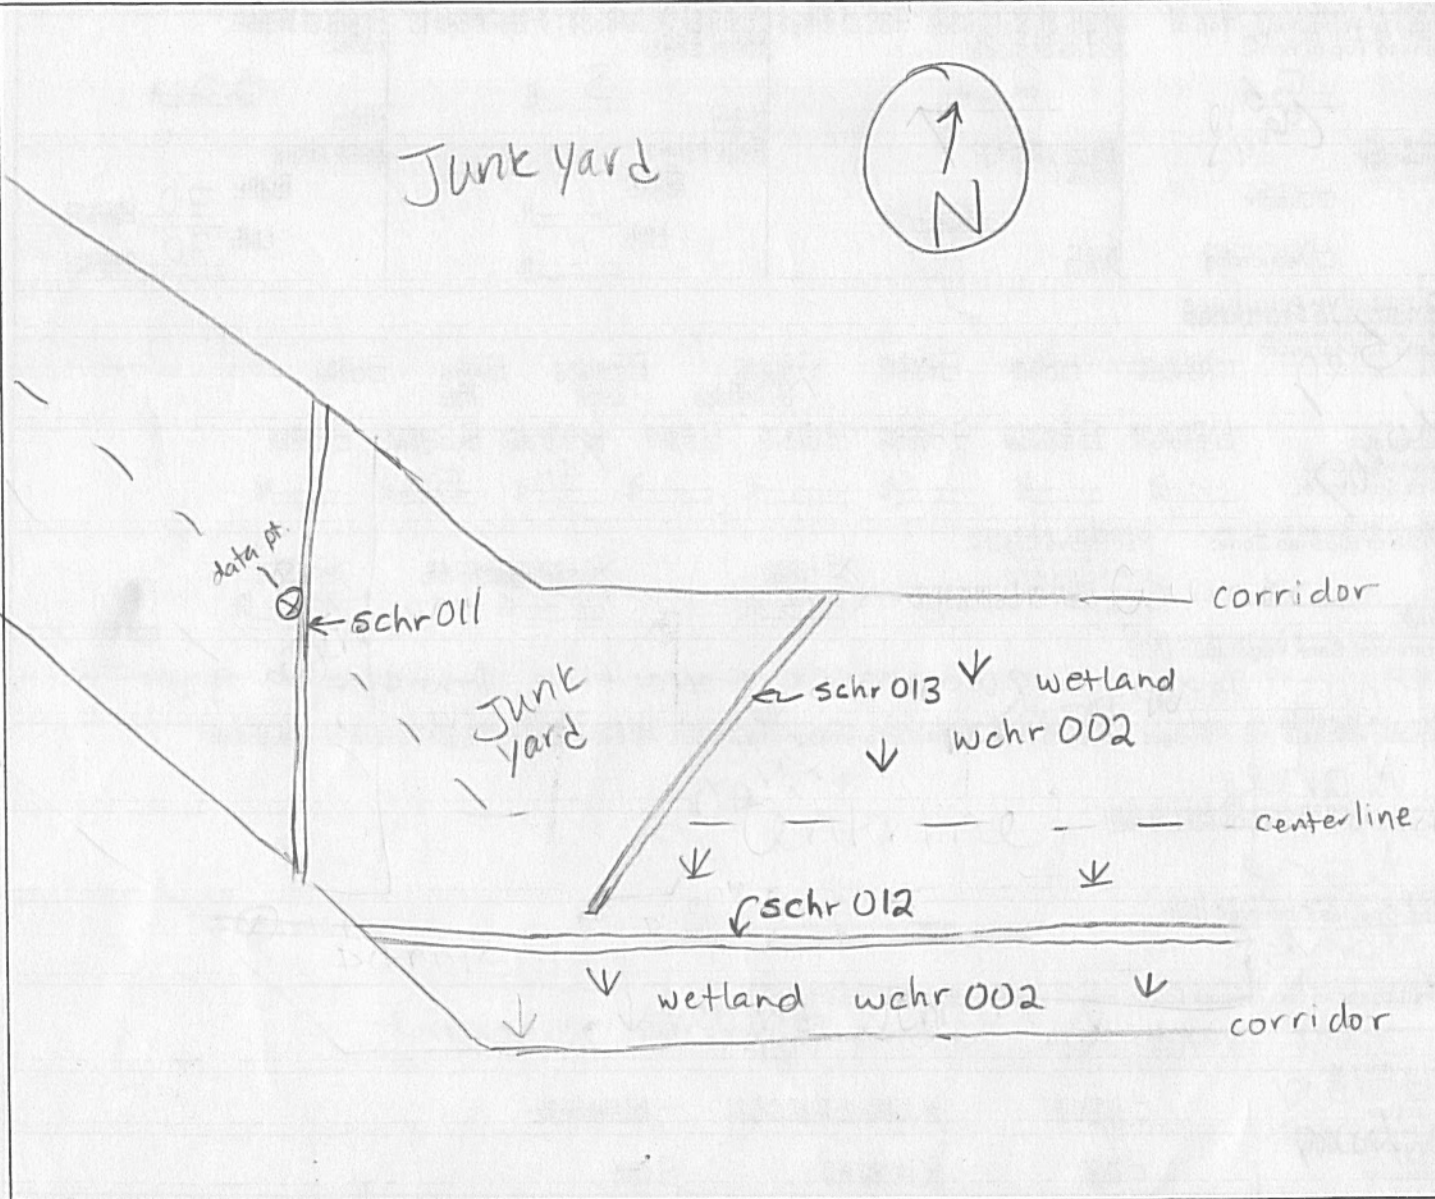 Junk Yard
N
data pt.
schr 011
corridor
Junk
Yard
schr 013
wetland
wchr 002
centerline
schr 012
wetland wchr 002
corridor